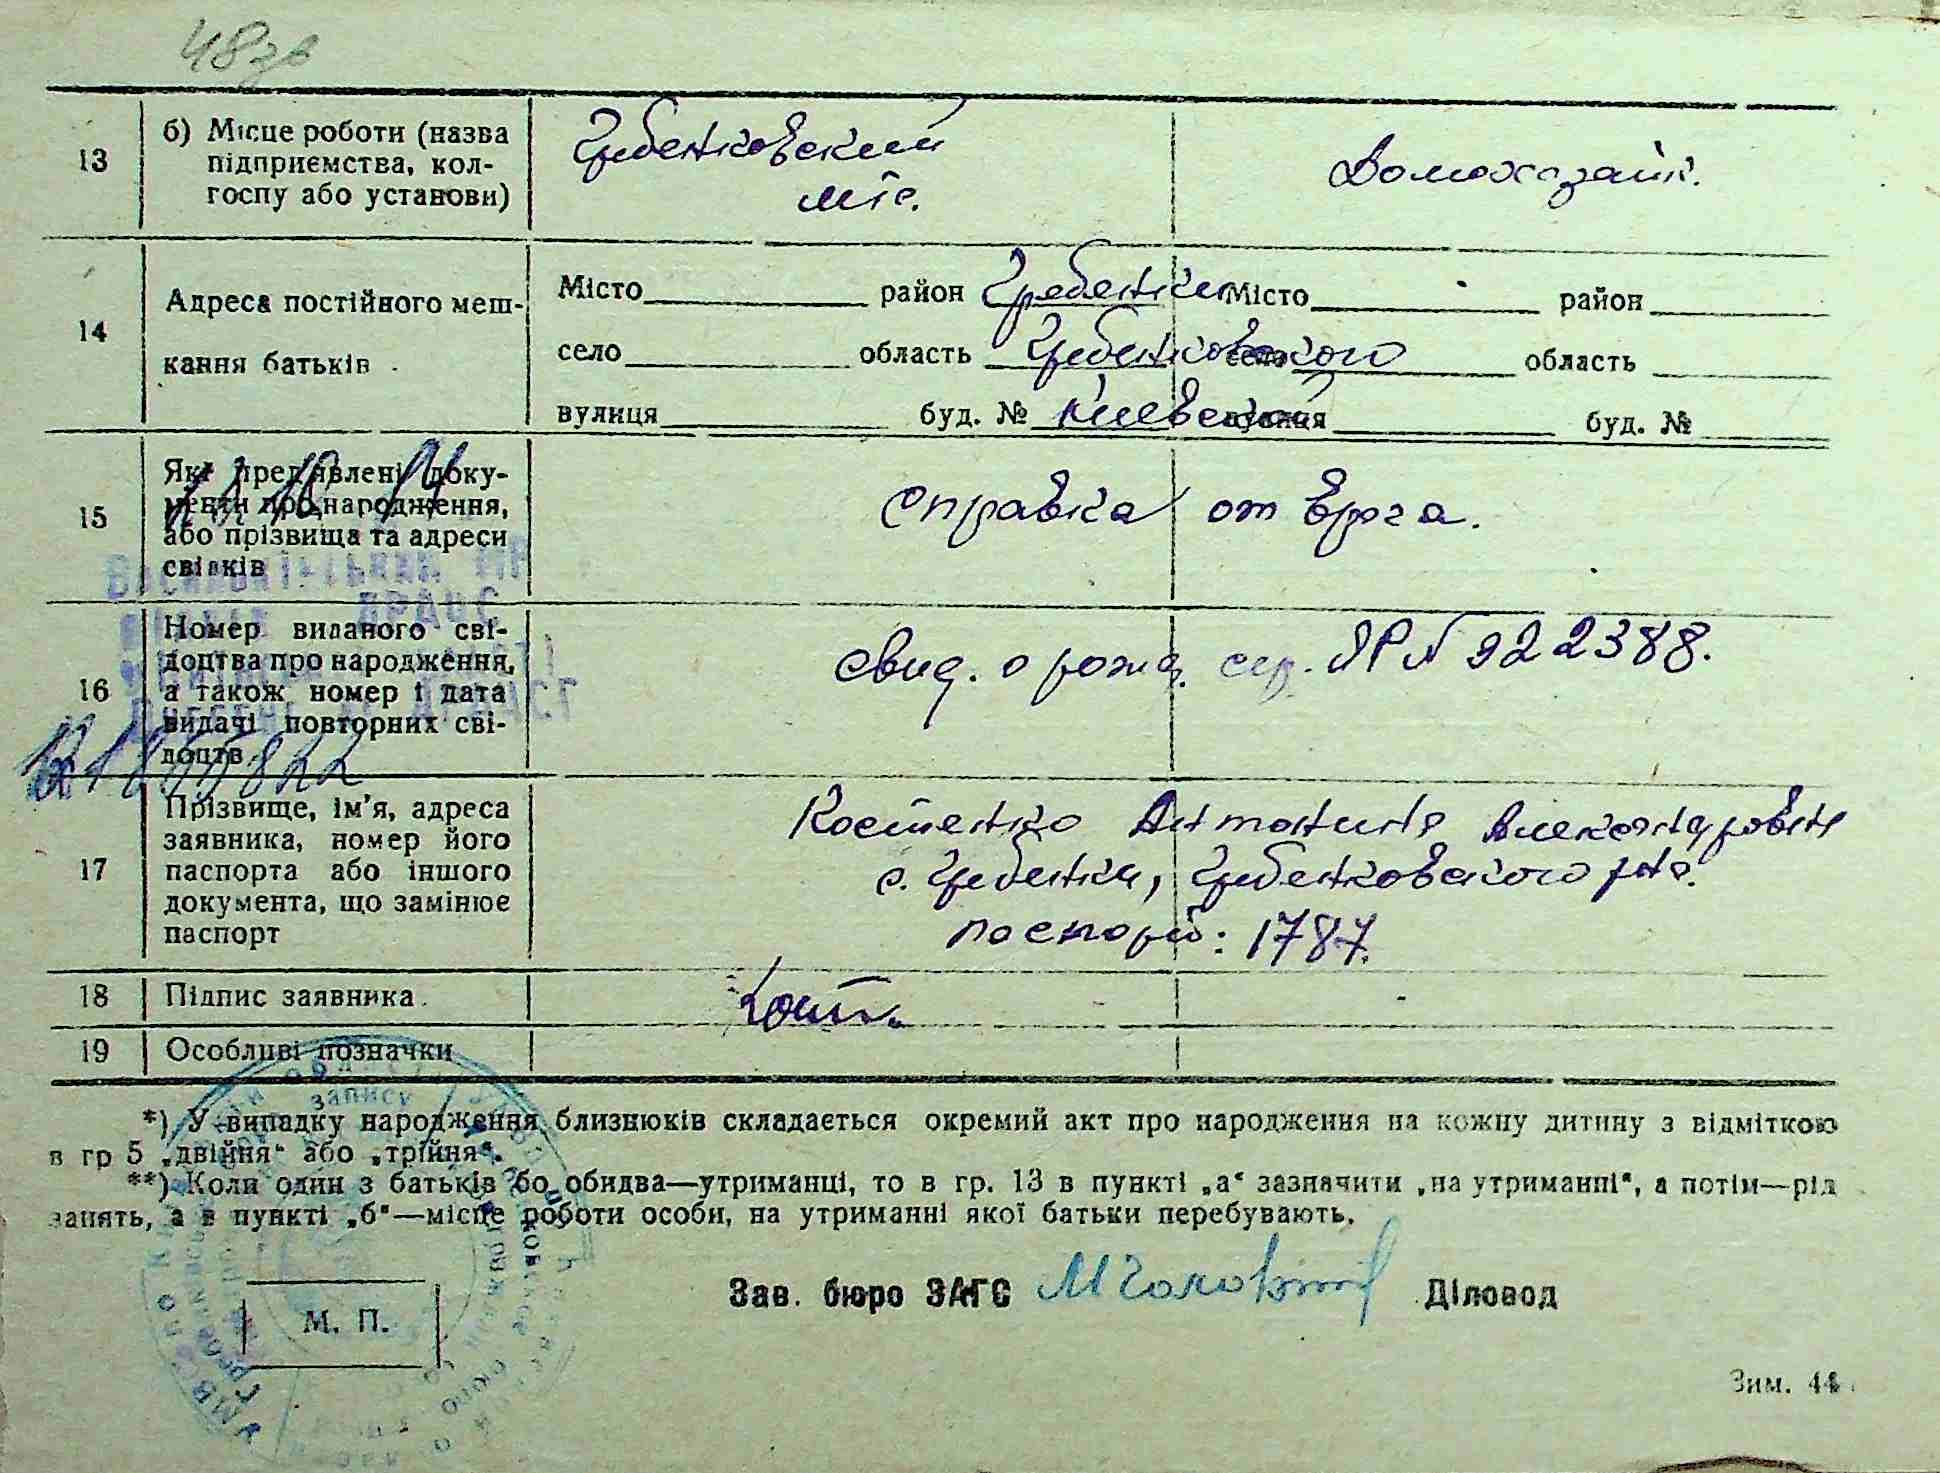 48зв
13 б) Місце роботи (назва підприємства, кол-госпу або установи) Гребенковский Домохазайк.
мтс.
14 Адреса постійного меш-кання батьків
Місто район Гребенки Місто район
село область Гребенковского село область
вулиця буд. № Киевской вулиця буд. №
15 Які пред'явлені доку-
менти про народження,
або прізвища та адреси
свідків
справка от врача.
16 Номер виданого сві-
доцтва про народження,
а також номер і дата
видачі повторних сві-
доцтв
свид. о рожд. сер. ЯР № 922388.
17 Прізвище, ім'я, адреса
заявника, номер його
паспорта або іншого
документа, що замінює
паспорт
Костенко Антонина Александровна
с. Гребенки, Гребенковского р-на.
паспорт: 1787.
18 Підпис заявника.
19 Особливі позначки
*) У випадку народження близнюків складається окремий акт про народження на кожну дитину з відміткою
в гр 5 „двійня“ або „трійня“.
**) Коли один з батьків бо обидва—утриманці, то в гр. 13 в пункті „а“ зазначити „на утриманні“, а потім—рід
занять, а в пункті „б“—місце роботи особи, на утриманні якої батьки перебувають.
Зав. бюро ЗАГС Діловод
М. П.
Зим. 44